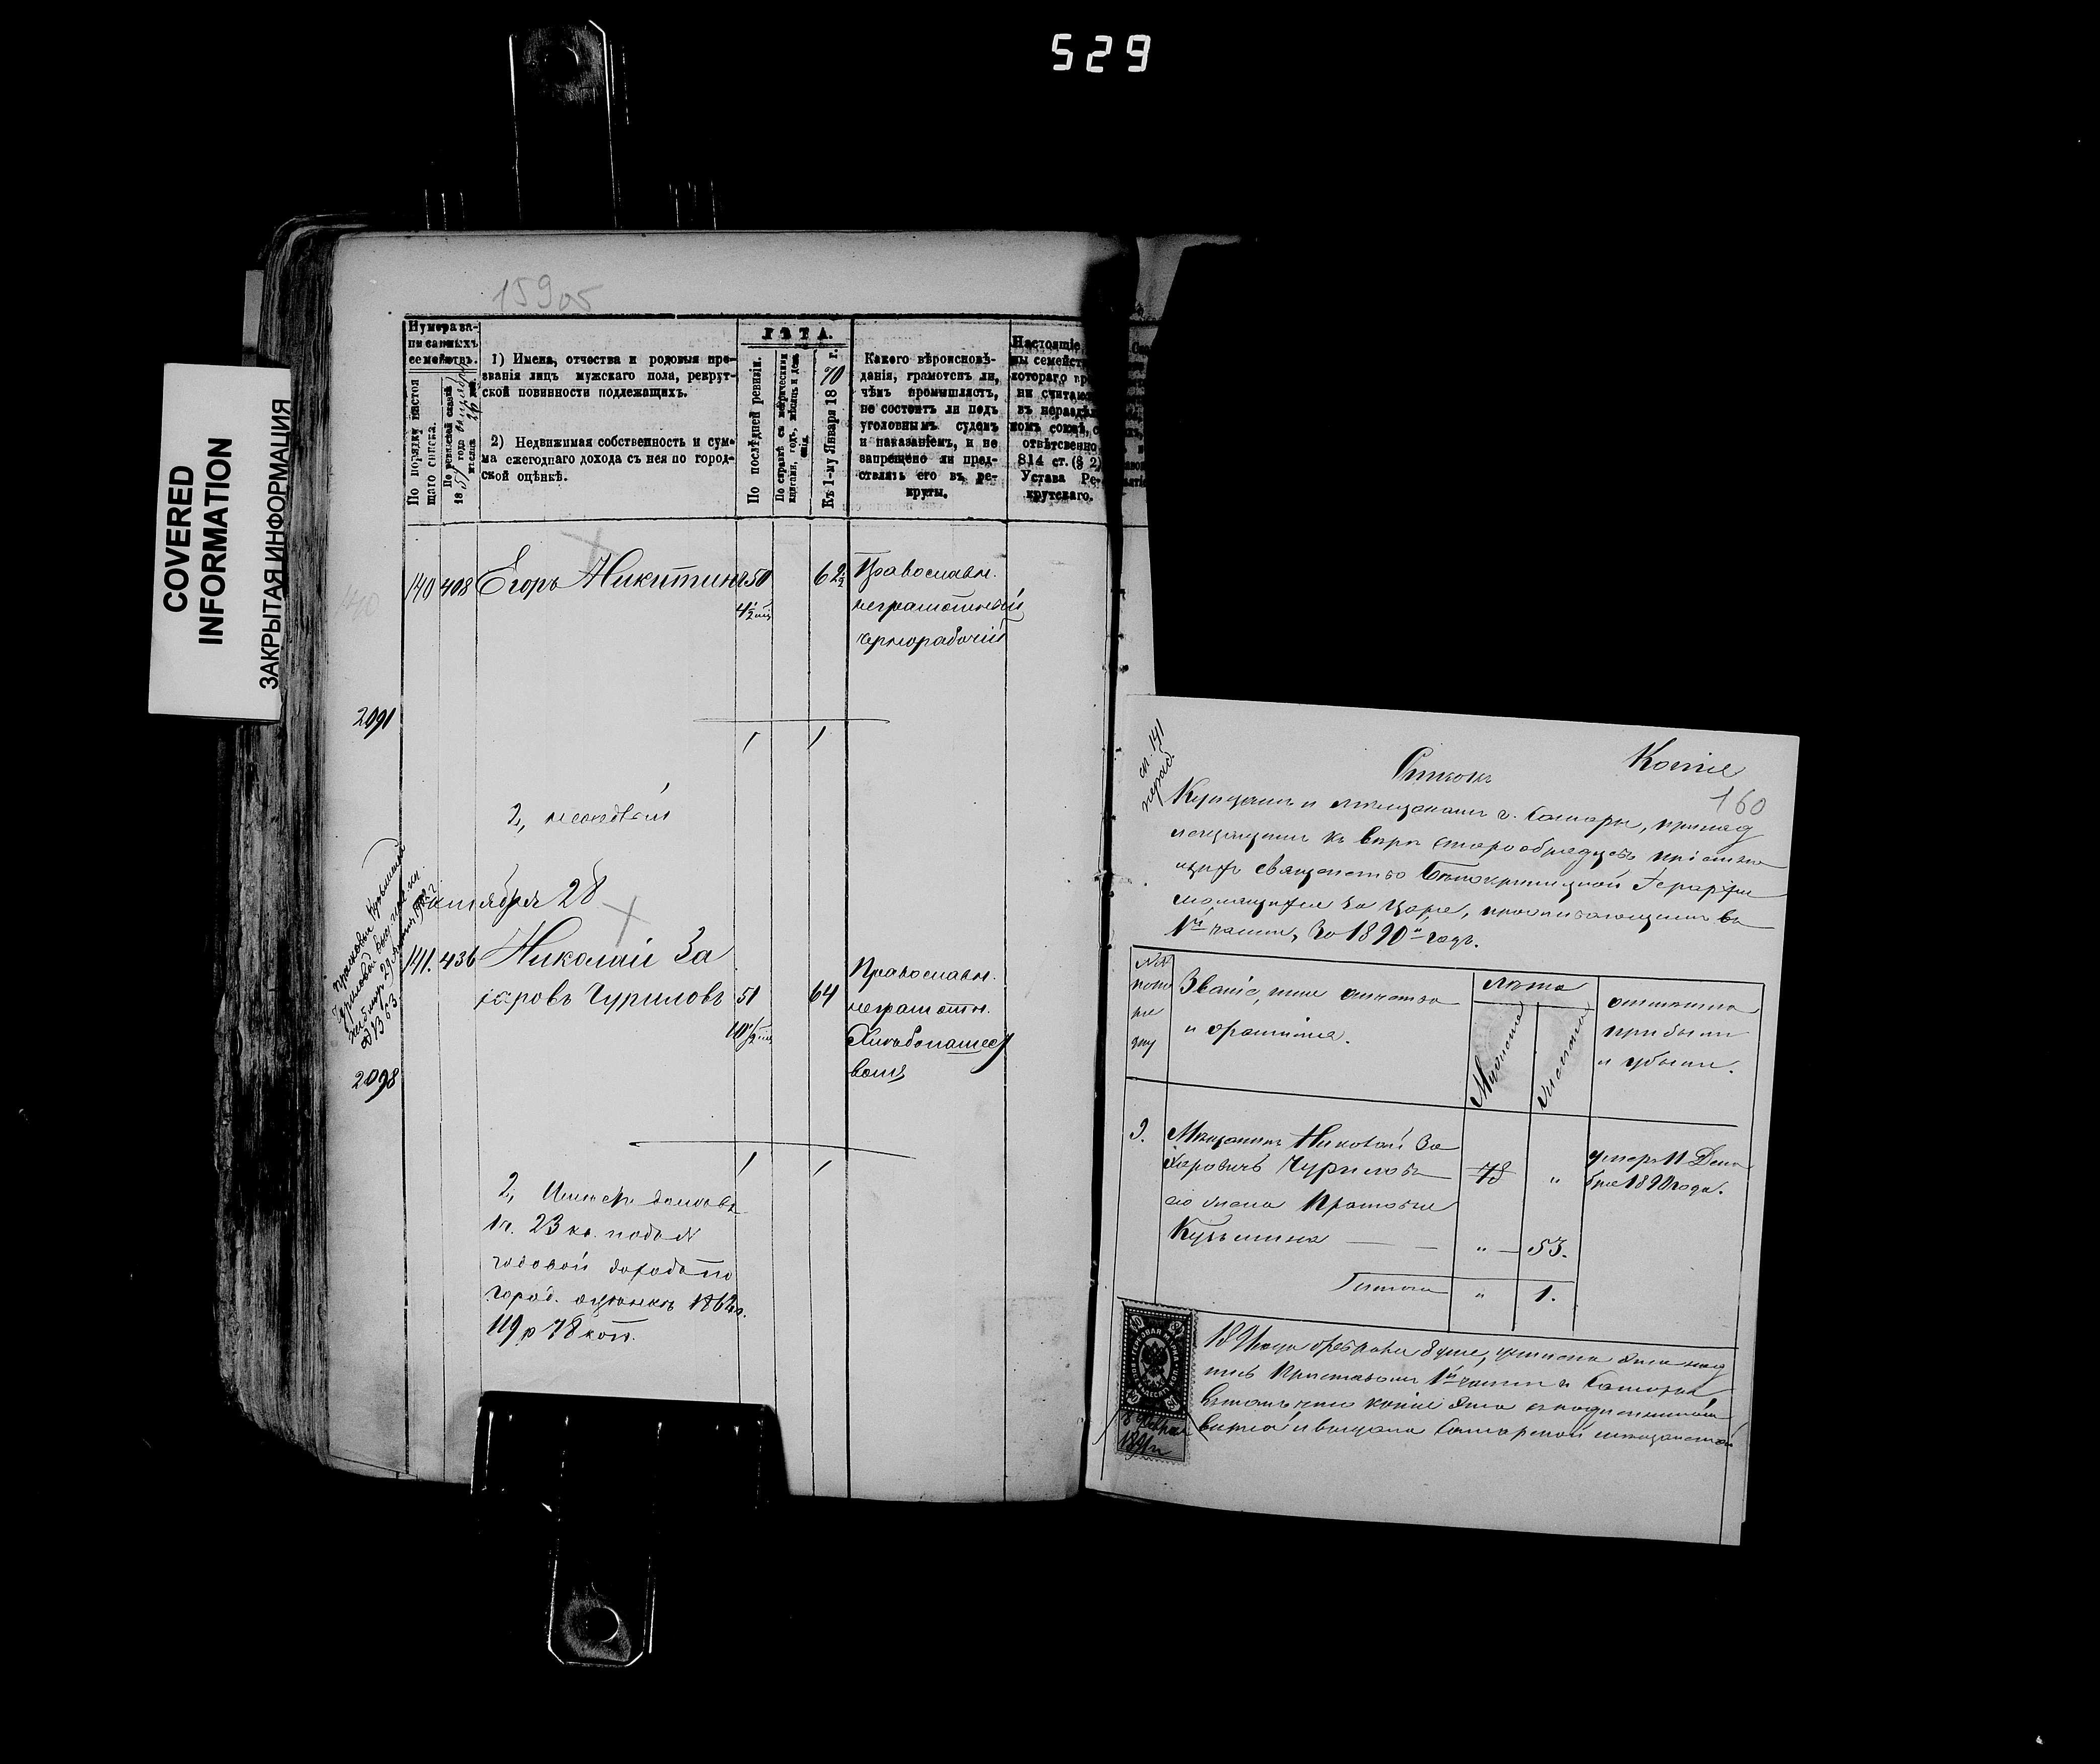 529
COVERED
INFORMATION
ЗАКРЫТАЯ ИНФОРМАЦИЯ
159об
Нумера за-
писанныхъ
семействъ.
По порядку настоя
щаго списка.
По ревизской сказкѣ
18 57 года
1) Имена, отчества и родовыя про-
званія лицъ мужскаго пола, рекрут-
ской повинности подлежащихъ.
2) Недвижимая собственность и сум-
ма ежегоднаго дохода съ нея по город-
ской оцѣнкѣ.
ЛѢТА.
По послѣдней ревизіи.
По справкѣ съ метрическими
книгами, годъ, мѣсяцъ и день
Къ 1-му Января 18 70 г.
Какого вѣроисповѣ-
данія, грамотенъ ли,
чѣмъ промышляетъ,
не состоитъ ли подъ
уголовнымъ судомъ
и наказаніемъ, и не
запрещено ли пред-
ставлять его въ ре-
круты.
Настоящіе
ны семейст
котораго
ни считаю
въ нераздѣ
номъ союзѣ, с
отвѣтсвенно
814 ст. (§ 2)
Устава Ре-
крутскаго.
140 408 Егоръ Никитинъ 50 62 Православн.
4½ мѣс неграмотный
чернорабочій
140
2091
1 1
2,
октября 28
141. 436 Николай За
харовъ Чуриловъ 51 64 Православн.
10½ неграмотн.
Хлѣбопашес
вомъ
Прасковьи Кузьминой
Чуриловой
2098
1 1
2, Имѣетъ домъ въ
1 ч. 23 кв. подъ №
годовой доходъ по
город. оцѣнкѣ 186 г.
119 р 78 коп.
сп. 141
Копіе
160
Списокъ
Купцамъ и мѣщанамъ г. Самары, принад
лежащимъ къ вѣрѣ старообрядцевъ пріемлю
щихъ священство Бѣлокриницкой Іерархіи
молящихся за Царя, проживающимъ въ
1й части, за 1890й годъ.
№№
по по
ря
дку
Званіе, имя отчество
и фамилія.
лѣта
Мужеска
Женска
отмѣтка
прибыли
и убыли.
9. Мѣщанинъ Николай За
харовичъ Чуриловъ 78 " умеръ 11 Дека
бря 1890 года.
его жена Прасковья
Кузьмина " 53.
Итого " 1.
1891 года февраля 8 дня, учинена сія над
пись Приставомъ 1й части г. Самары
въ томъ что копія сія съ подлиннымъ
вѣрна и выдана Самарской мѣщанской
8 Февраля
1891 г.